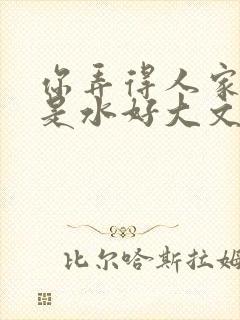 你弄得人家
是水好大文
比尔哈斯拉姆